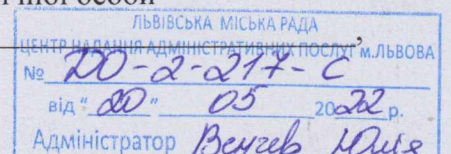 ної особи
ЛЬВІВСЬКА МІСЬКА РАДА
ЦЕНТР НАДАННЯ АДМІНІСТРАТИВНИХ ПОСЛУГ м.ЛЬВОВА
№ ДО-2-217-С
від "20" 05 2022 р.
Адміністратор Юлія